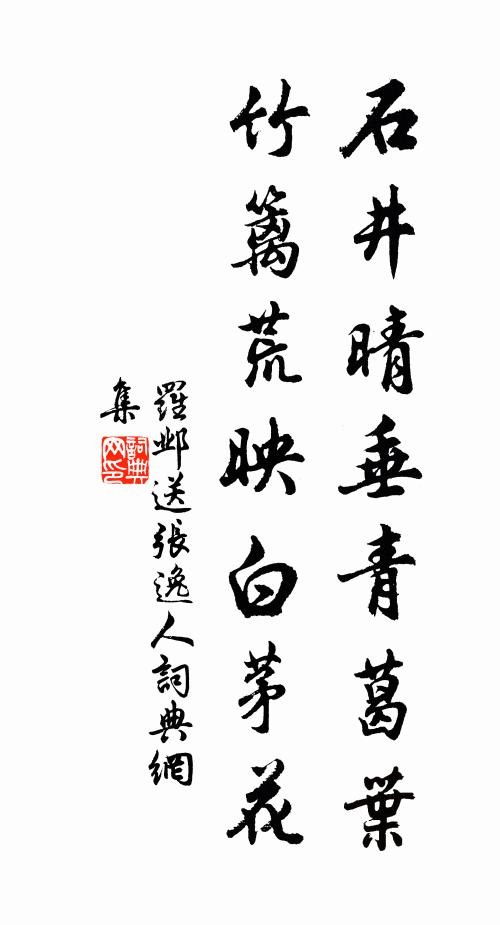 石井晴垂青葛葉
竹籬荒映白茅花
羅邺送張逸人詞典網
集
詞典
网印